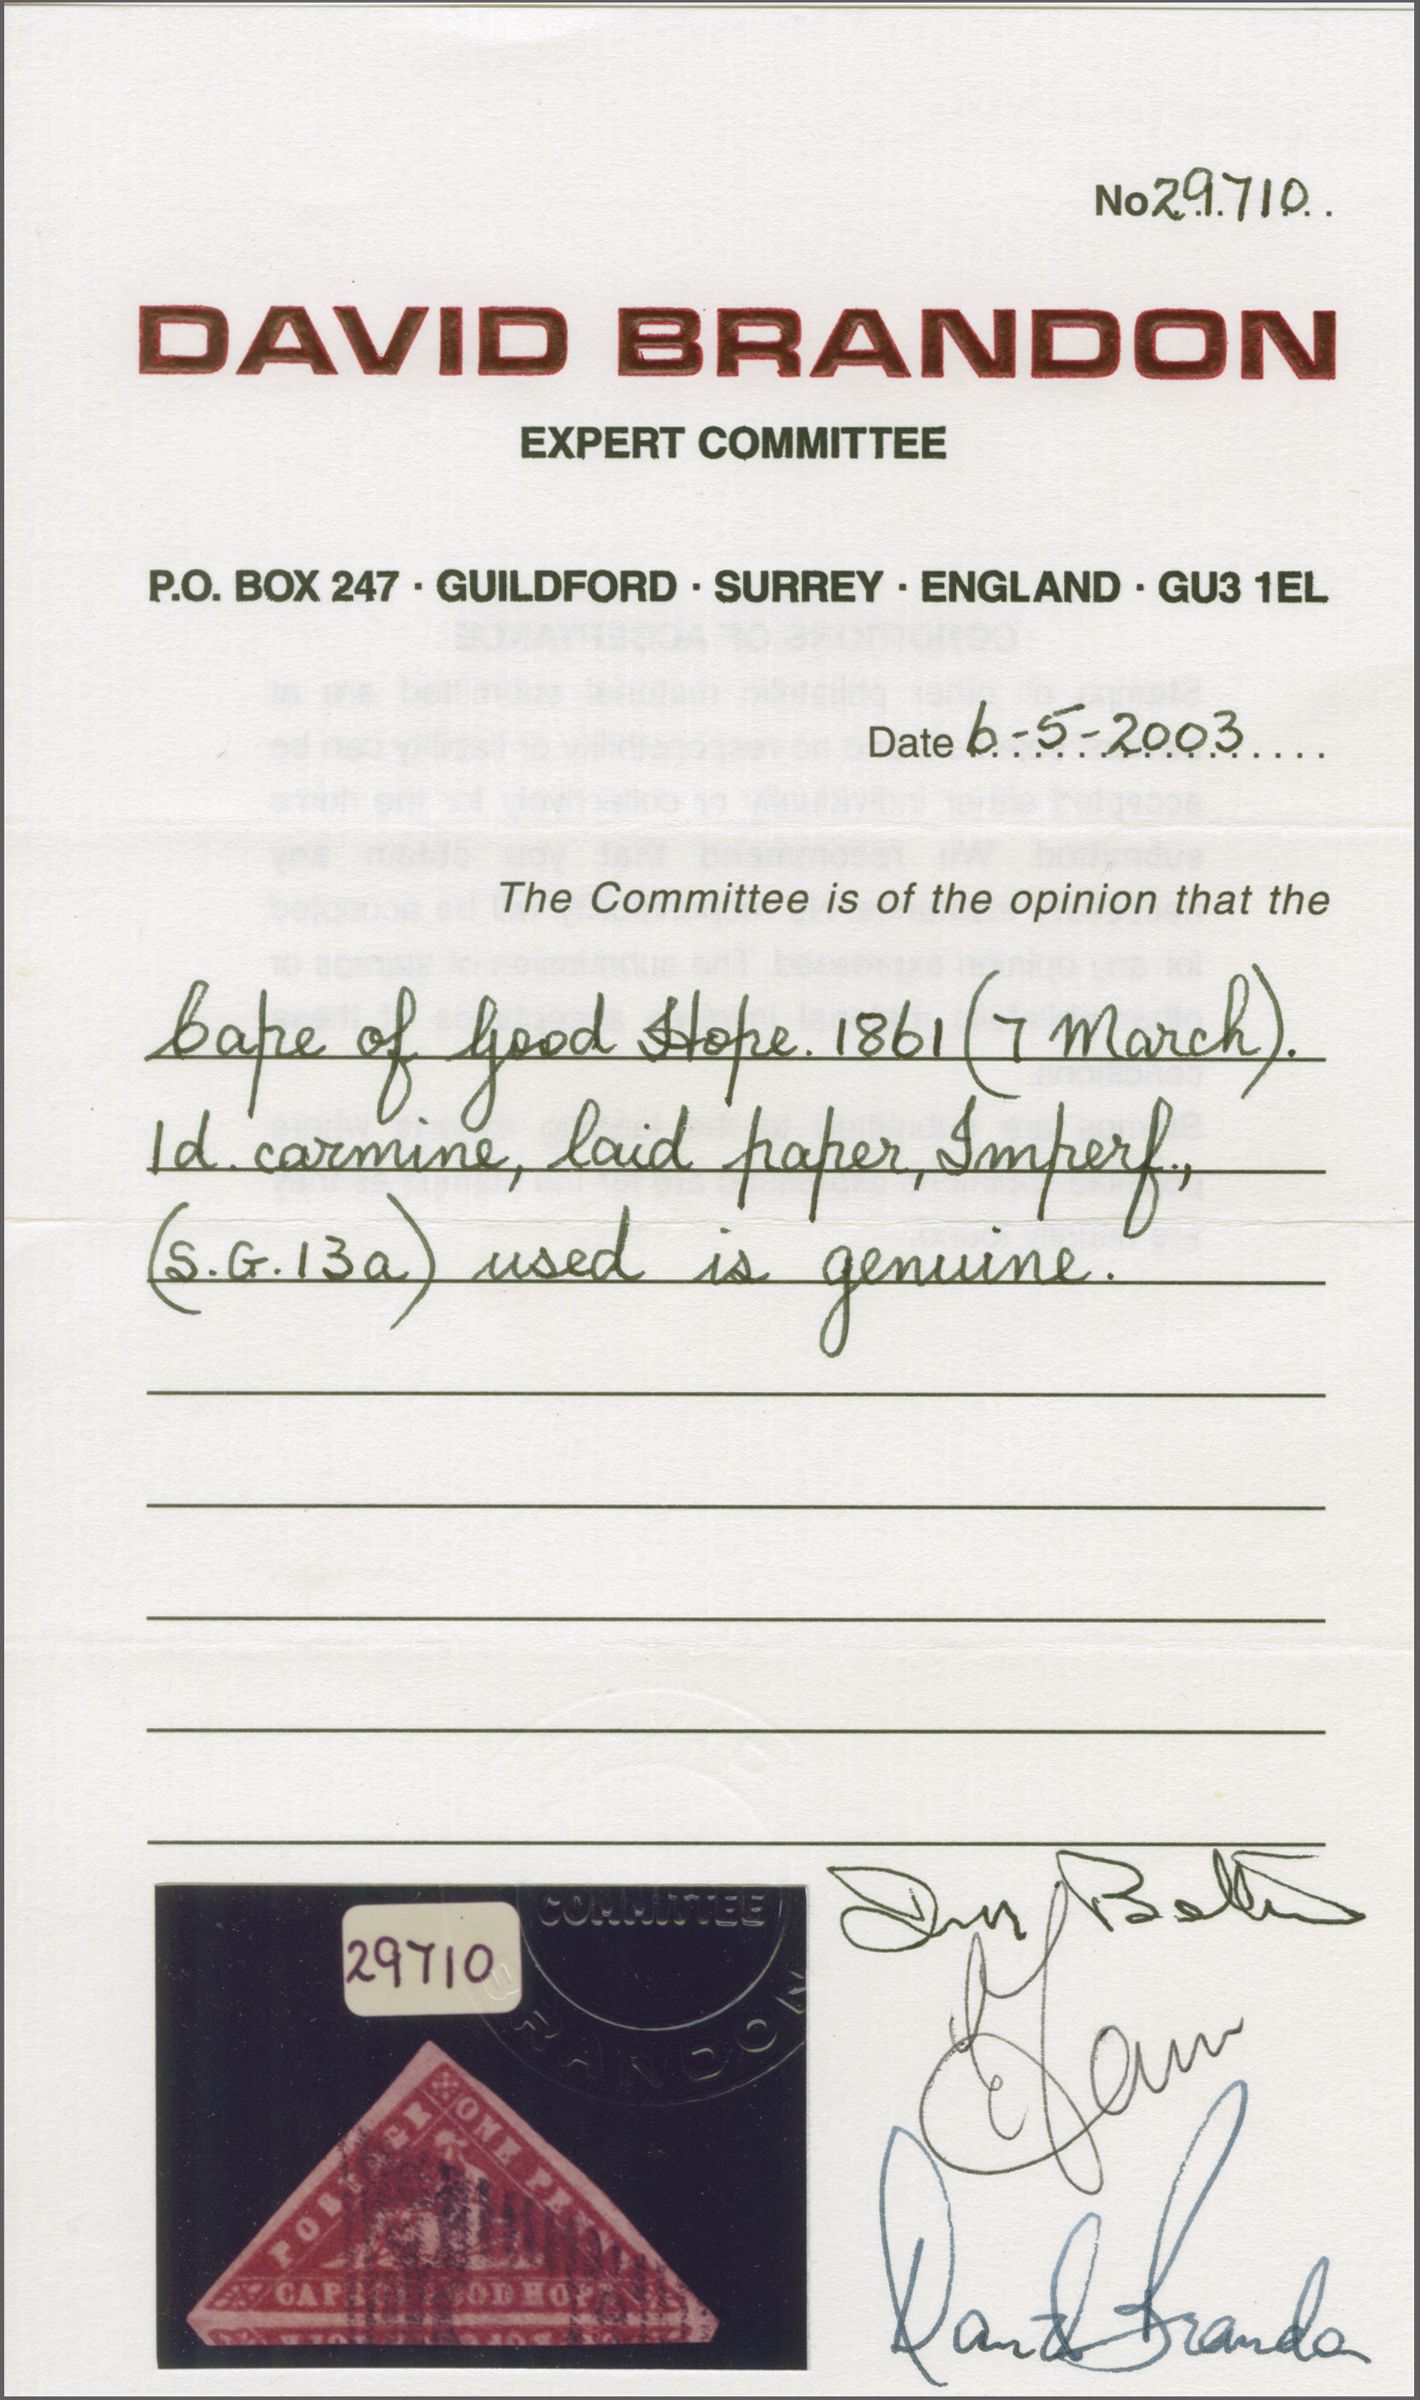 No 29.710
DAVID BRANDON
EXPERT COMMITTEE
P.O. BOX 247 · GUILDFORD · SURREY · ENGLAND · GU3 1EL
Date 6-5-2003
The Committee is of the opinion that the
Cape of Good Hope. 1861 (7 March).
1d. carmine, laid paper, Imperf.,
(S.G.13a) used is genuine.
COMMITTEE
BRANDON
29710
POSTAGE ONE PENNY
CAPE OF GOOD HOPE
David Brandon